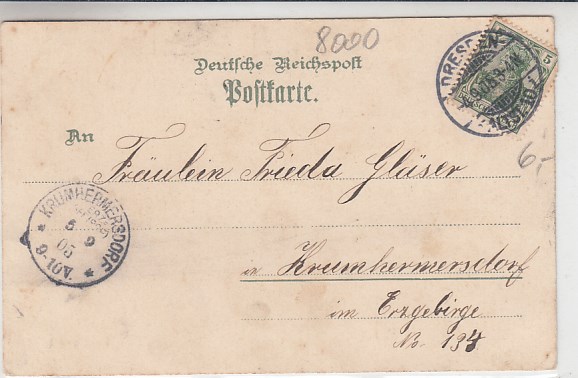 8000
Deutsche Reichspost
Postkarte.
DRESDEN
5
An
Fräulein Frieda Gläser
6,-
KRUMHERMERSDORF
5 9
05
9-10V.
in Krumhermersdorf
im Erzgebirge
No. 194